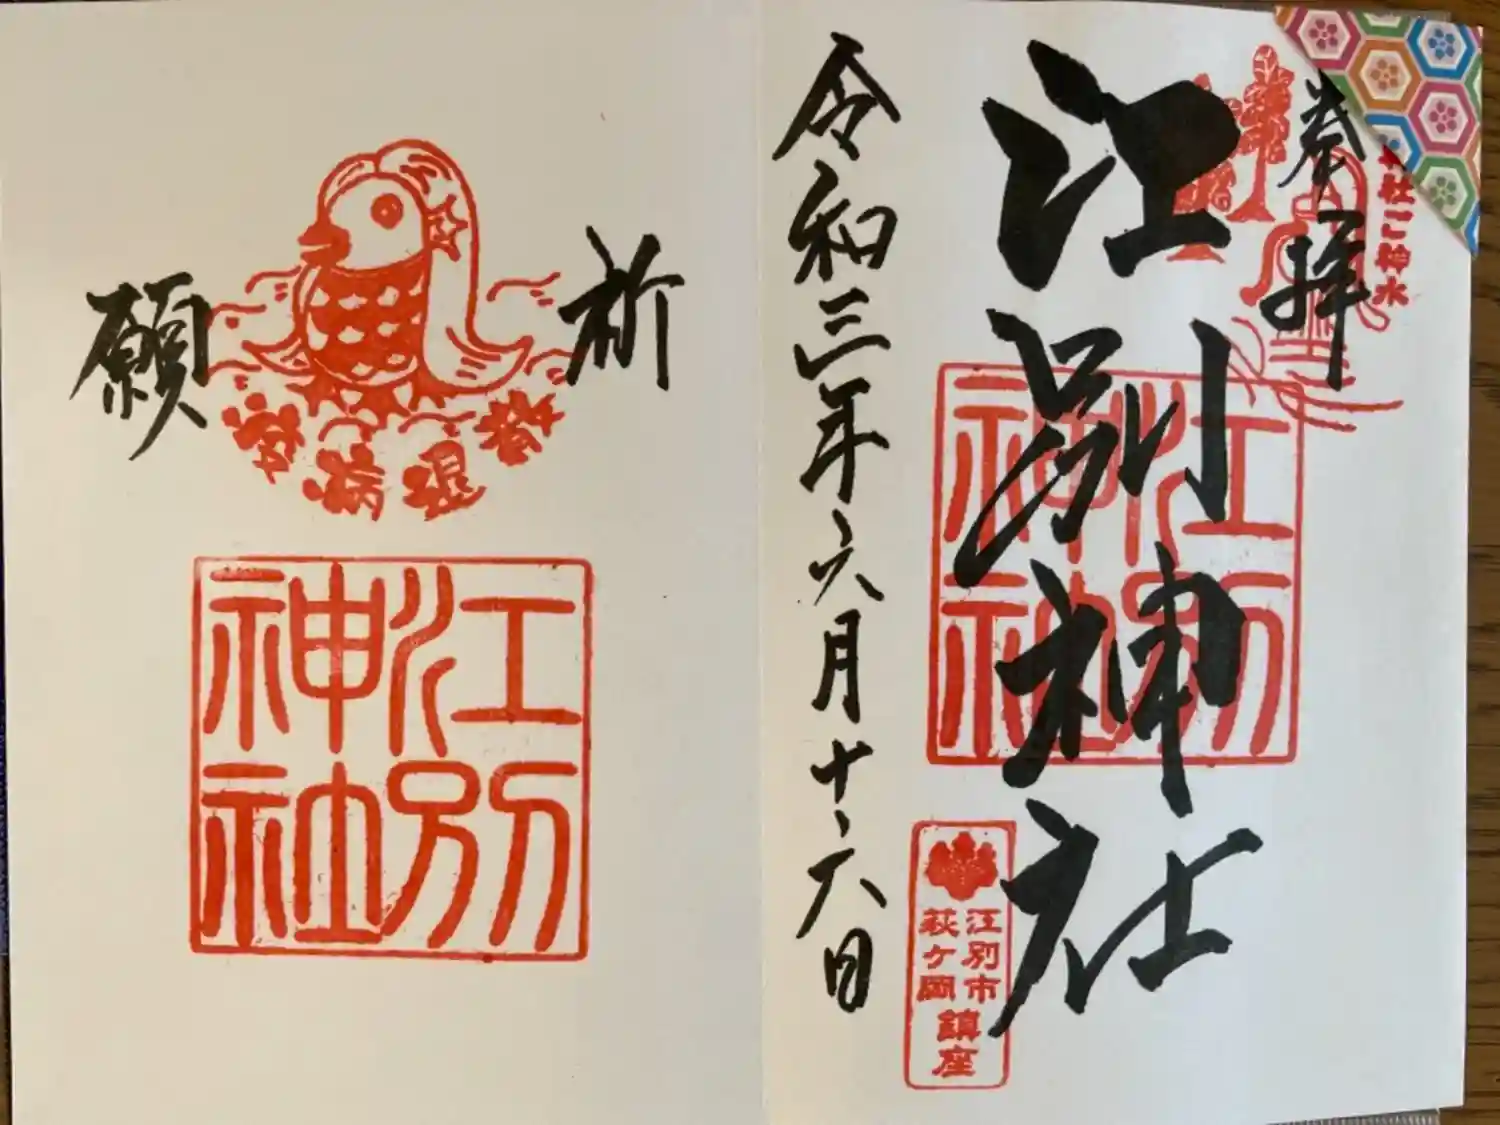 奉拝
社ご神水
江別神社
江別神社
江別市
萩ヶ岡
鎮座
令和三年六月十六日
祈願
疫病退散
江別神社